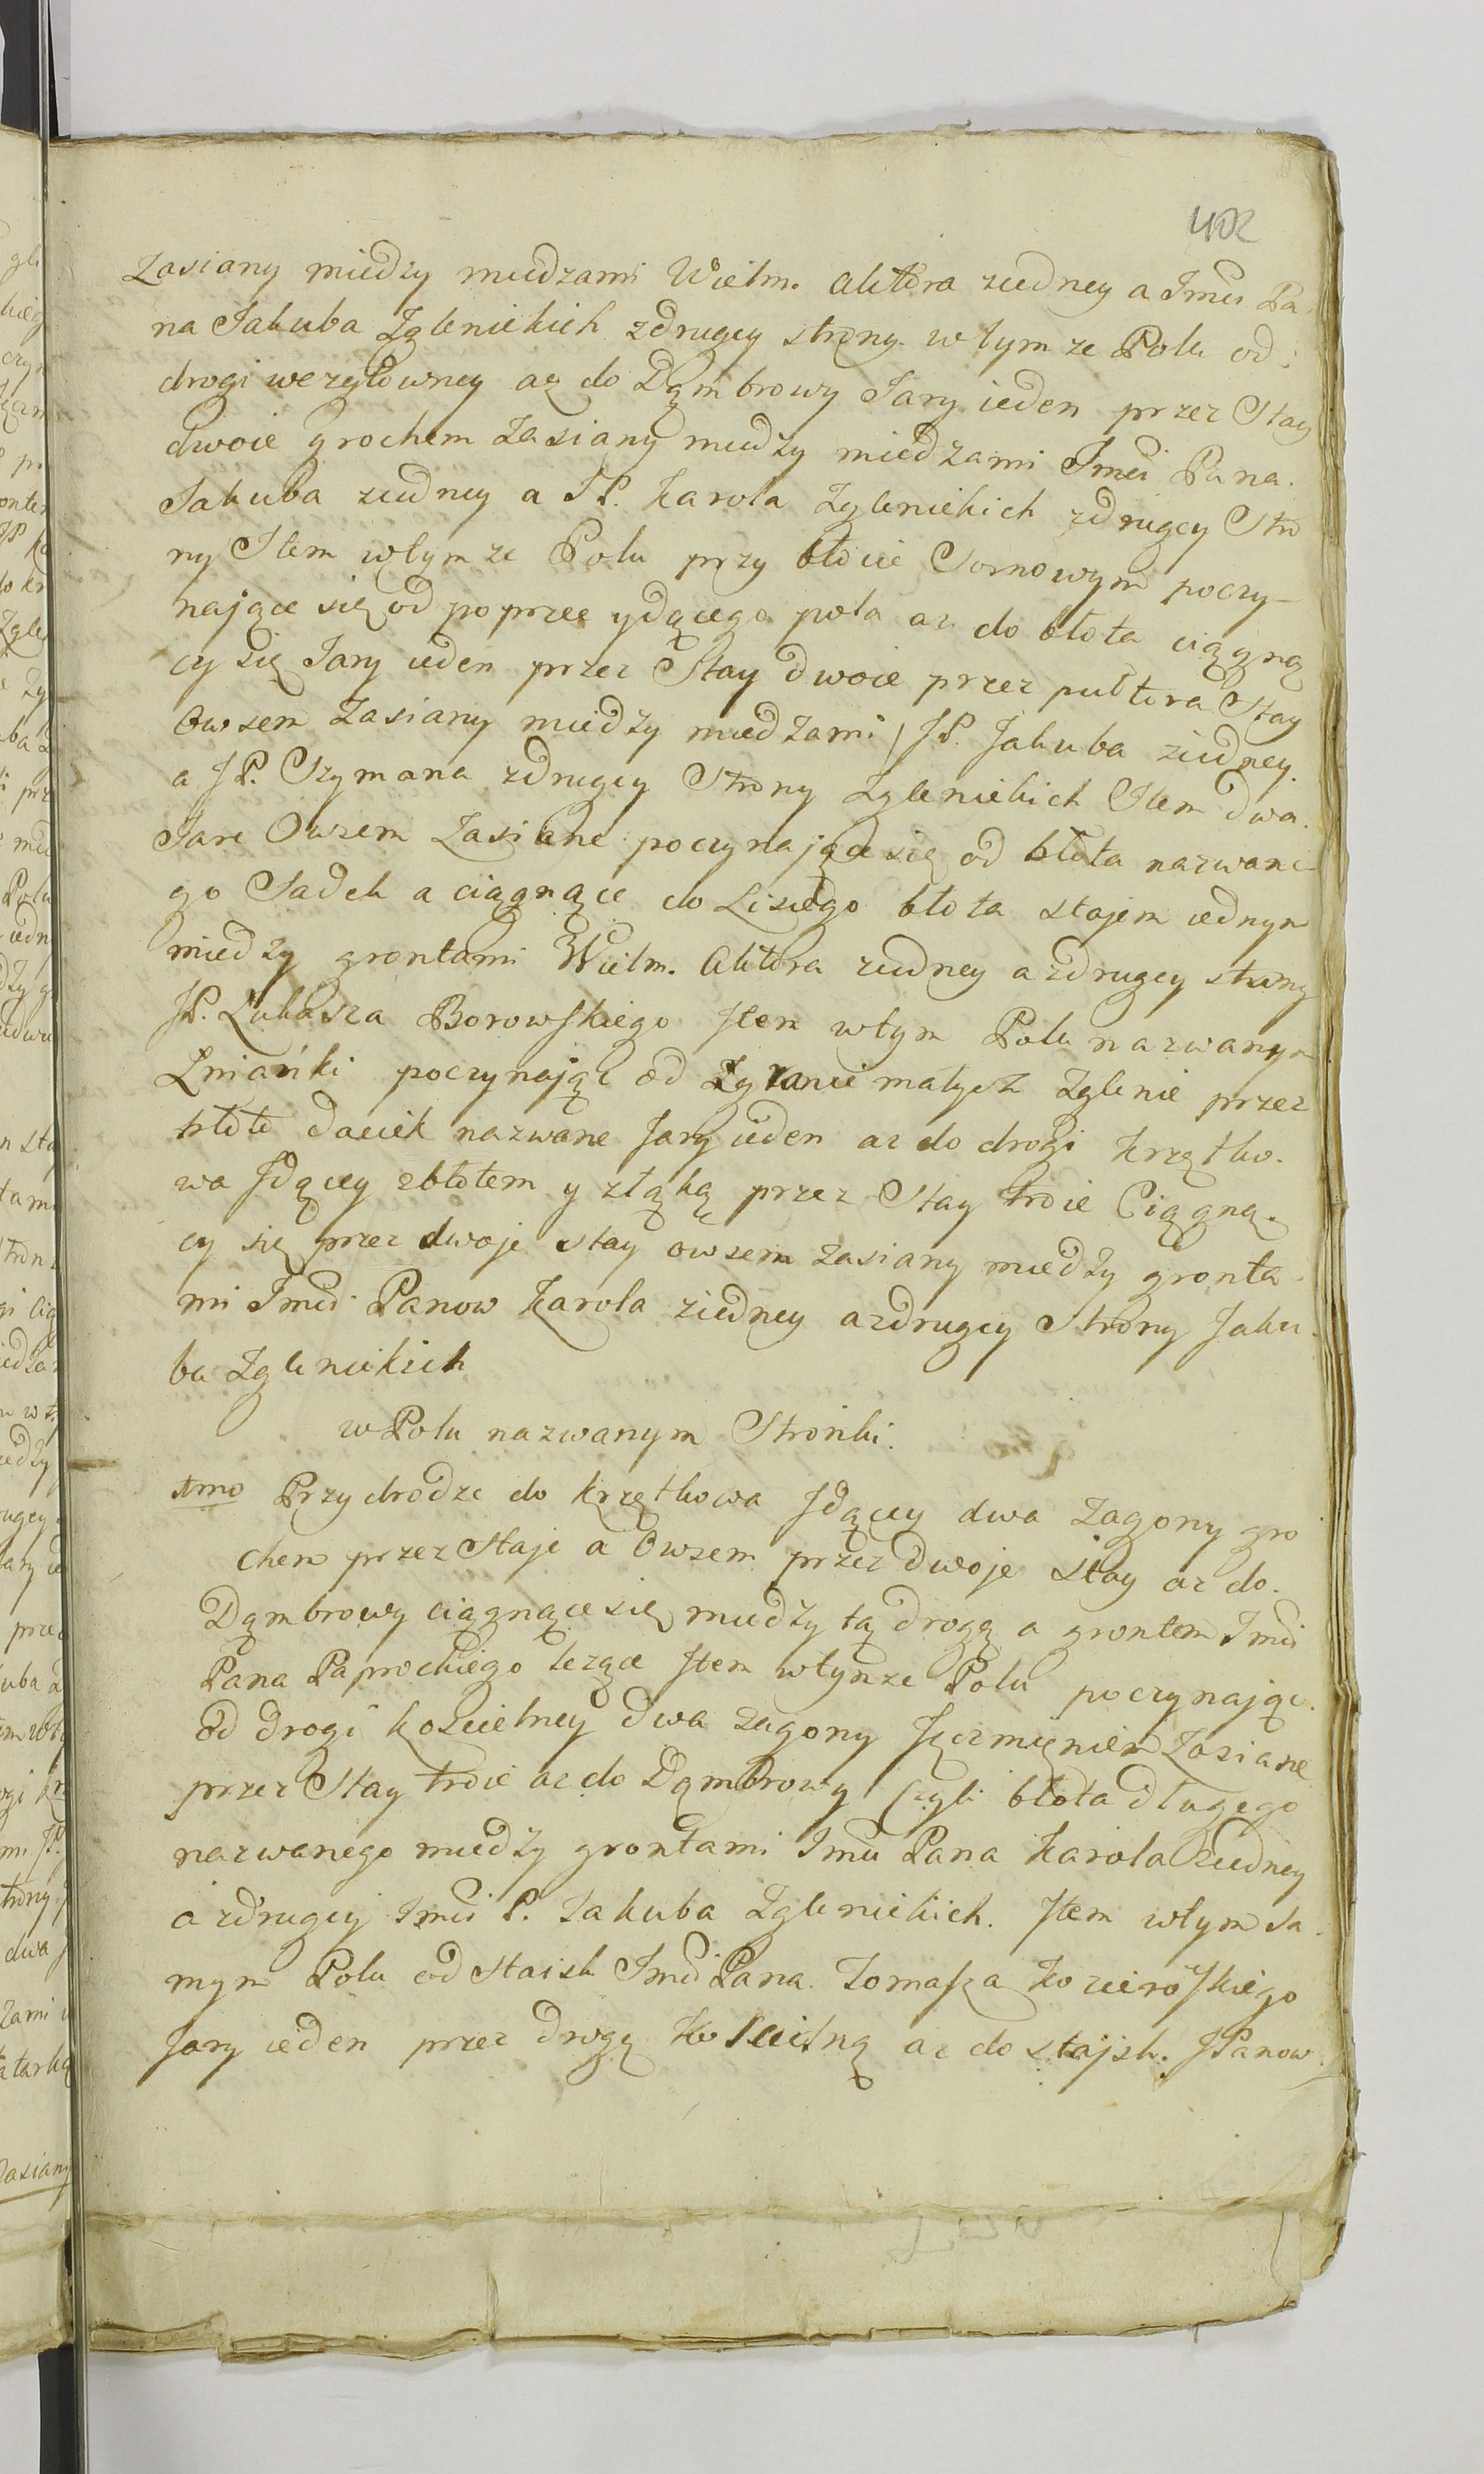 402
Zasiany miedzy miedzami Wielm. Aktora ziedney a Jmci Pa-
na Jakuba Zglenickich zdrugey strony. w tym ze Polu od
drogi wezgłowney aż do Dąmbrowy Jary ieden przez Stay
dwoie grochem Zasiany miedzy miedzami Jmci Pana.
Jakuba ziedney a JP. Karola Zglenickich zdrugey Stro
ny Item wtym ze Polu przy błocie Sornowym poczy-
naiące się od poprzec ydącego pola az do błota ciągną
cy się Jary ieden przez Stay dwoie przez pułtora Stay
Owsem Zasiany miedzy miedzami JP. Jakuba ziedney.
a JP. Szymana zdrugey Strony Zglenickich Item dwa.
Jare Owsem Zasiane poczynające się od błota nazwane-
go Sadek a ciągnące do Lisiego błota stajem iednym
miedzy grontami Wielm. Aktora ziedney a zdrugey strony
JP. Łukasza Borowskiego Item wtym Polu nazwanym
Lnianki poczynając od Zgranic małych Zglenic przez
błoto Daciek nazwane Jary ieden az do drogi Krzętko-
wa Jdącey zbłotem y złąką przez Stay troie Ciągną-
cy się przez dwoje stay owsem zasiany miedzy gronta-
mi Jmci Panow Karola ziedney a zdrugey Strony Jaku-
ba Zglenickich
w Polu nazwanym Stronki.
1mo Przy drodze do Krzętkowa Jdącey dwa Zagony gro
chem przez Staje a Owsem przez dwoje Stay az do.
Dąmbrowy ciągnące się miedzy tą drogą a grontem Jmci
Pana Paprockiego leżące Item wtymze Polu poczynając.
od Drogi kościelney dwa zagony Jęczmieniem Zasiane
przez Stay troie az do Dąmbrowy czyli błota długego
nazwanego miedzy grontami Jmci Pana Karola ziedney
a zdrugey Jmci P. Jakuba Zglenickich. Item wtym Sa-
mym Polu od Staisk Jmci Pana Tomasza Kozieroskiego
Jary ieden przez Drogę Koscielną az do stajsk. JPanow